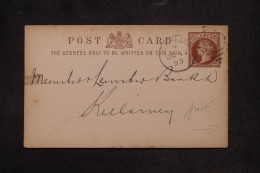 POST CARD
THE ADDRESS ONLY TO BE WRITTEN ON THIS SIDE.
93
Munster & Leinster Bank Ld
Killarney